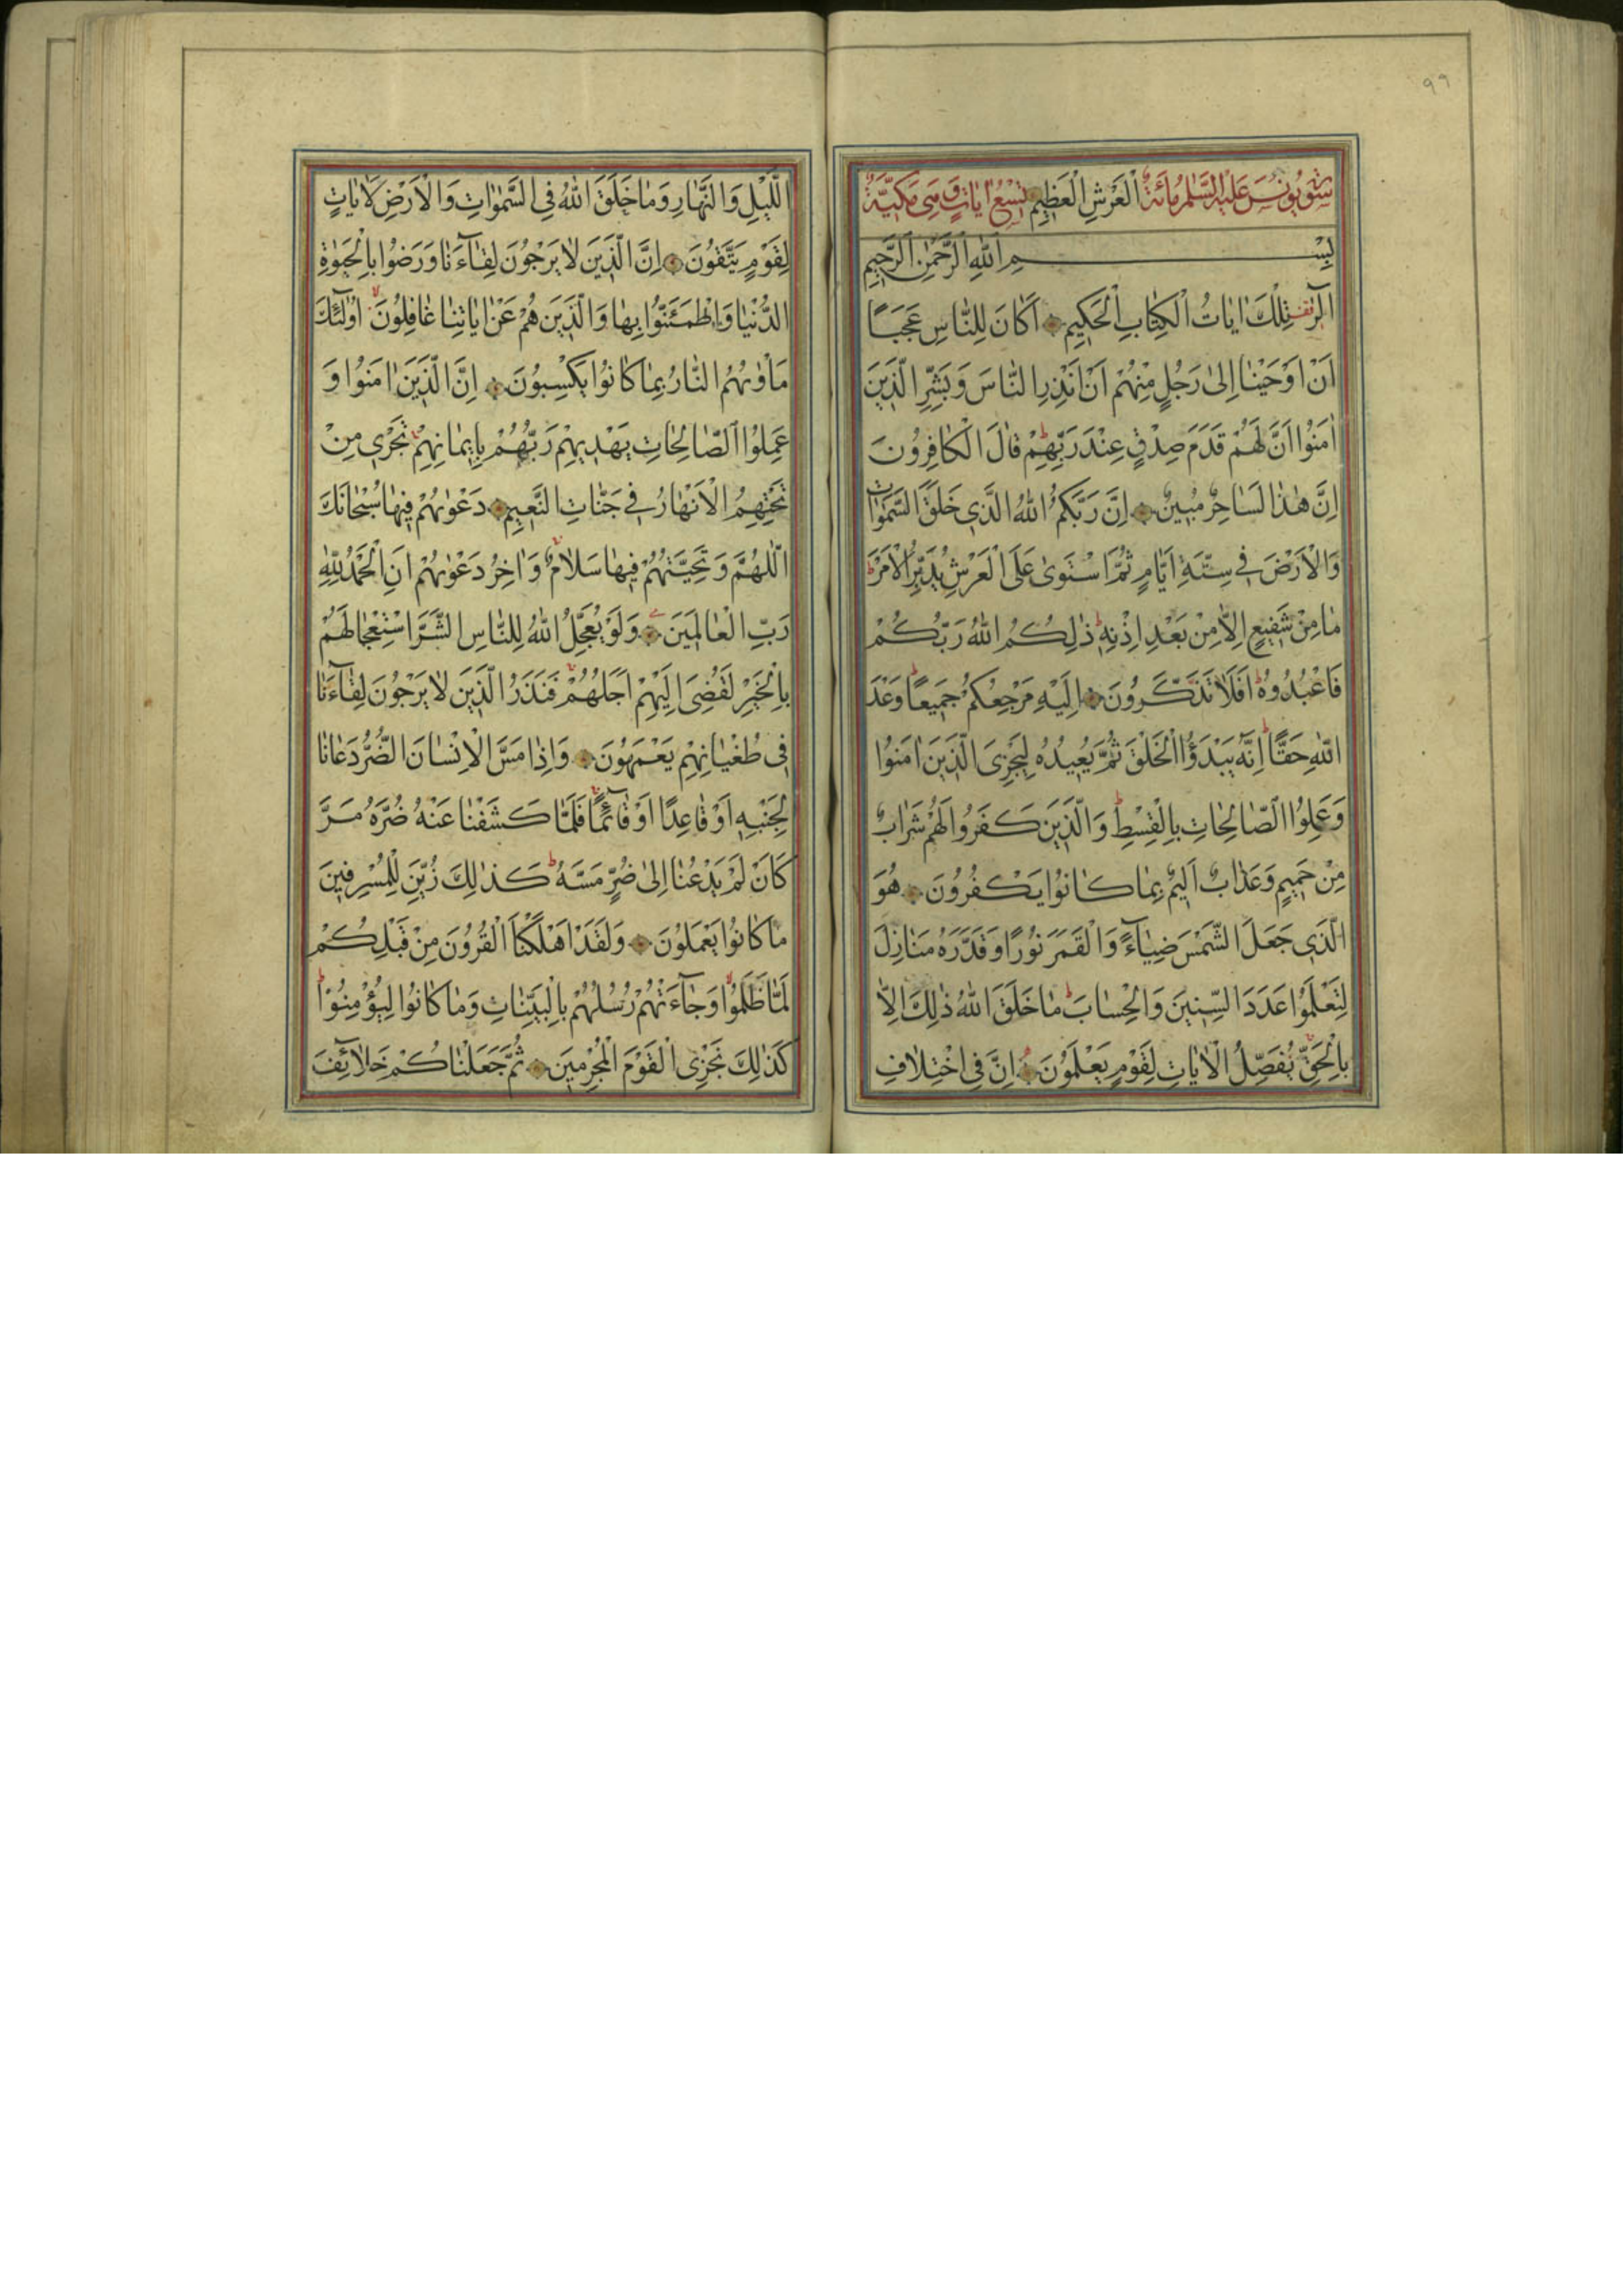 ٩٦
سورة يونس عليه السلام مائة الْعَرْشِ الْعَظِيمِ تسع ايات وهى مكيّة
بِسْمِ اللّٰهِ الرَّحْمٰنِ الرَّحِيمِ
الٓرٰ تِلْكَ اٰيَاتُ الْكِتَابِ الْحَكِيمِ اَكَانَ لِلنَّاسِ عَجَبًا
اَنْ اَوْحَيْنَا اِلٰى رَجُلٍ مِنْهُمْ اَنْ اَنْذِرِ النَّاسَ وَبَشِّرِ الَّذِينَ
اٰمَنُوا اَنَّ لَهُمْ قَدَمَ صِدْقٍ عِنْدَ رَبِّهِمْ قَالَ الْكَافِرُونَ
اِنَّ هٰذَا لَسَاحِرٌ مُبِينٌ اِنَّ رَبَّكُمُ اللّٰهُ الَّذِي خَلَقَ السَّمٰوَاتِ
وَالْاَرْضَ فِي سِتَّةِ اَيَّامٍ ثُمَّ اسْتَوٰى عَلَى الْعَرْشِ يُدَبِّرُ الْاَمْرَ
مَا مِنْ شَفِيعٍ اِلَّا مِنْ بَعْدِ اِذْنِهِ ذٰلِكُمُ اللّٰهُ رَبُّكُمْ
فَاعْبُدُوهُ اَفَلَا تَذَكَّرُونَ اِلَيْهِ مَرْجِعُكُمْ جَمِيعًا وَعْدَ
اللّٰهِ حَقًّا اِنَّهُ يَبْدَؤُا الْخَلْقَ ثُمَّ يُعِيدُهُ لِيَجْزِيَ الَّذِينَ اٰمَنُوا
وَعَمِلُوا الصَّالِحَاتِ بِالْقِسْطِ وَالَّذِينَ كَفَرُوا لَهُمْ شَرَابٌ
مِنْ حَمِيمٍ وَعَذَابٌ اَلِيمٌ بِمَا كَانُوا يَكْفُرُونَ هُوَ
الَّذِي جَعَلَ الشَّمْسَ ضِيَاءً وَالْقَمَرَ نُورًا وَقَدَّرَهُ مَنَازِلَ
لِتَعْلَمُوا عَدَدَ السِّنِينَ وَالْحِسَابَ مَا خَلَقَ اللّٰهُ ذٰلِكَ اِلَّا
بِالْحَقِّ يُفَصِّلُ الْاٰيَاتِ لِقَوْمٍ يَعْلَمُونَ اِنَّ فِي اخْتِلَافِ
اللَّيْلِ وَالنَّهَارِ وَمَا خَلَقَ اللّٰهُ فِي السَّمٰوَاتِ وَالْاَرْضِ لَاٰيَاتٍ
لِقَوْمٍ يَتَّقُونَ اِنَّ الَّذِينَ لَا يَرْجُونَ لِقَاءَنَا وَرَضُوا بِالْحَيٰوةِ
الدُّنْيَا وَاطْمَئَنُّوا بِهَا وَالَّذِينَ هُمْ عَنْ اٰيَاتِنَا غَافِلُونَ اُولٰئِكَ
مَأْوٰيهُمُ النَّارُ بِمَا كَانُوا يَكْسِبُونَ اِنَّ الَّذِينَ اٰمَنُوا وَ
عَمِلُوا الصَّالِحَاتِ يَهْدِيهِمْ رَبُّهُمْ بِاِيمَانِهِمْ تَجْرِي مِنْ
تَحْتِهِمُ الْاَنْهَارُ فِي جَنَّاتِ النَّعِيمِ دَعْوٰيهُمْ فِيهَا سُبْحَانَكَ
اللّٰهُمَّ وَتَحِيَّتُهُمْ فِيهَا سَلَامٌ وَاٰخِرُ دَعْوٰيهُمْ اَنِ الْحَمْدُ لِلّٰهِ
رَبِّ الْعَالَمِينَ وَلَوْ يُعَجِّلُ اللّٰهُ لِلنَّاسِ الشَّرَّ اسْتِعْجَالَهُمْ
بِالْخَيْرِ لَقُضِيَ اِلَيْهِمْ اَجَلُهُمْ فَنَذَرُ الَّذِينَ لَا يَرْجُونَ لِقَاءَنَا
فِي طُغْيَانِهِمْ يَعْمَهُونَ وَاِذَا مَسَّ الْاِنْسَانَ الضُّرُّ دَعَانَا
لِجَنْبِهِ اَوْ قَاعِدًا اَوْ قَائِمًا فَلَمَّا كَشَفْنَا عَنْهُ ضُرَّهُ مَرَّ
كَاَنْ لَمْ يَدْعُنَا اِلٰى ضُرٍّ مَسَّهُ كَذٰلِكَ زُيِّنَ لِلْمُسْرِفِينَ
مَا كَانُوا يَعْمَلُونَ وَلَقَدْ اَهْلَكْنَا الْقُرُونَ مِنْ قَبْلِكُمْ
لَمَّا ظَلَمُوا وَجَاءَتْهُمْ رُسُلُهُمْ بِالْبَيِّنَاتِ وَمَا كَانُوا لِيُؤْمِنُوا
كَذٰلِكَ نَجْزِي الْقَوْمَ الْمُجْرِمِينَ ثُمَّ جَعَلْنَاكُمْ خَلَائِفَ